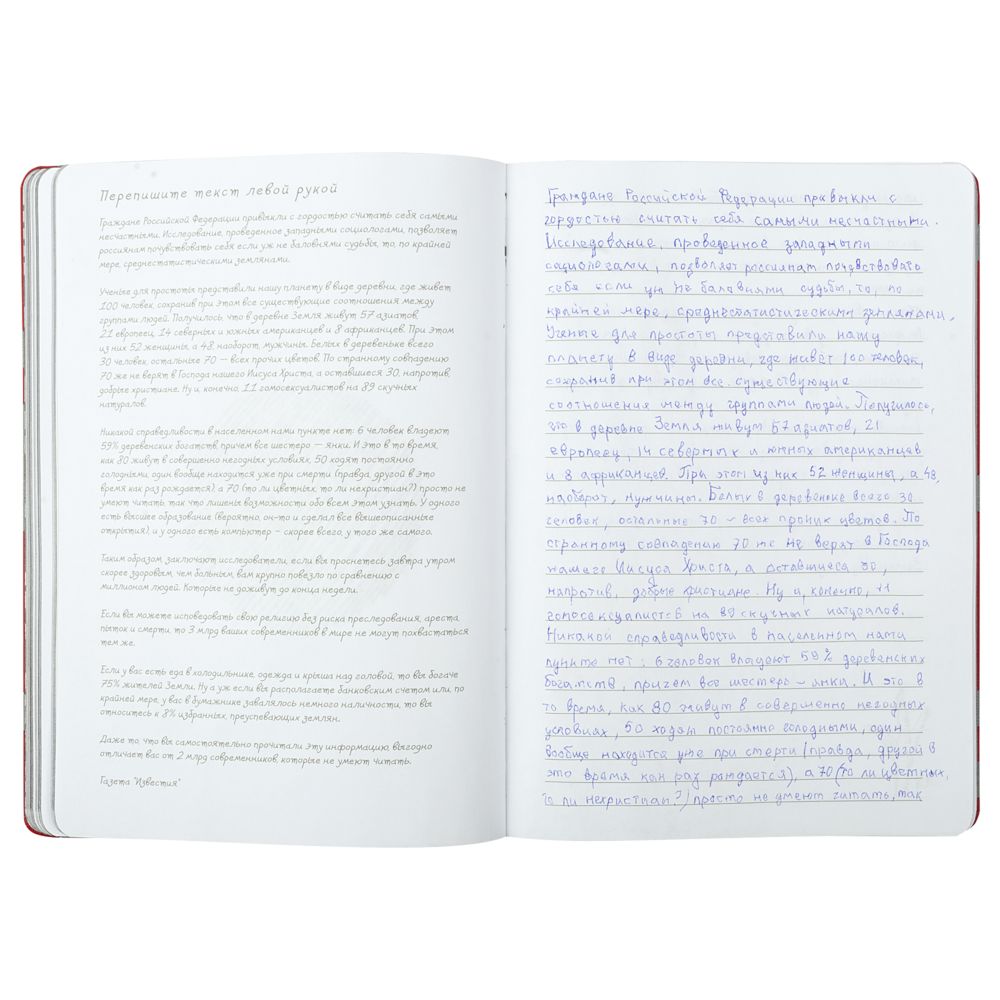 Перепишите текст левой рукой
Граждане Российской Федерации привыкли с гордостью считать себя самыми
несчастными. Исследование, проведенное западными социологами, позволяет
россиянам почувствовать себя если уж не баловнями судьбы, то, по крайней
мере, среднестатистическими землянами.
Ученые для простоты представили нашу планету в виде деревни, где живет
100 человек, сохранив при этом все существующие соотношения между
группами людей. Получилось, что в деревне Земля живут 57 азиатов,
21 европеец, 14 северных и южных американцев и 8 африканцев. При этом
из них 52 женщины, а 48, наоборот, мужчины. Белых в деревеньке всего
30 человек, остальные 70 — всех прочих цветов. По странному совпадению
70 же не верят в Господа нашего Иисуса Христа, а оставшиеся 30, напротив,
добрые христиане. Ну и, конечно, 11 гомосексуалистов на 89 скучных
натуралов.
Никакой справедливости в населенном нами пункте нет: 6 человек владеют
59% деревенских богатств, причем все шестеро — янки. И это в то время,
как 80 живут в совершенно негодных условиях, 50 ходят постоянно
голодными, один вообще находится уже при смерти (правда, другой в это
время как раз рождается), а 70 (то ли цветных, то ли нехристиан?) просто не
умеют читать, так что лишены возможности обо всем этом узнать. У одного
есть высшее образование (вероятно, он-то и сделал все вышеописанные
открытия), и у одного есть компьютер – скорее всего, у того же самого.
Таким образом, заключают исследователи, если вы проснетесь завтра утром
скорее здоровым, чем больным, вам крупно повезло по сравнению с
миллионом людей. Которые не доживут до конца недели.
Если вы можете исповедовать свою религию без риска преследования, ареста,
пыток и смерти, то 3 млрд ваших современников в мире не могут похвастаться
тем же.
Если у вас есть еда в холодильнике, одежда и крыша над головой, то вы богаче
75% жителей Земли. Ну а уж если вы располагаете банковским счетом или, по
крайней мере, у вас в бумажнике завалялось немного наличности, то вы
относитесь к 8% избранных, преуспевающих землян.
Даже то, что вы самостоятельно прочитали эту информацию, выгодно
отличает вас от 2 млрд современников, которые не умеют читать.
Газета "Известия"
Граждане Российской Федерации привыкли с
гордостью считать себя самыми несчастными.
Исследование, проведенное западными
социологами, позволяет россиянам почувствовать
себя если уж не балавнями судьбы, то, по
крайней мере, среднестатистическими землянами.
Ученые для простоты представили нашу
планету в виде деревни, где живёт 100 человек,
сохранив при этом все существующие
соотношения между группами людей. Получилось,
что в деревне Земля живут 57 азиатов, 21
европеец, 14 северных и южных американцев
и 8 африканцев. При этом из них 52 женщины, а 48,
наоборот, мужчины. Белых в деревеньке всего 30
человек, остальные 70 – всех прочих цветов. По
странному совпадению 70 же не верят в Господа
нашего Иисуса Христа, а оставшиеся 30,
напротив, добрые христиане. Ну и, конечно, 11
гомосексуалистов на 89 скучных натуралов.
Никакой справедливости в населенном нами
пункте нет: 6 человек владеют 59% деревенских
богатств, причем все шестеро – янки. И это в
то время, как 80 живут в совершенно негодных
условиях, 50 ходят постоянно голодными, один
вообще находится уже при смерти (правда, другой в
это время как раз рождается), а 70 (то ли цветных,
то ли нехристиан?) просто не умеют читать, так